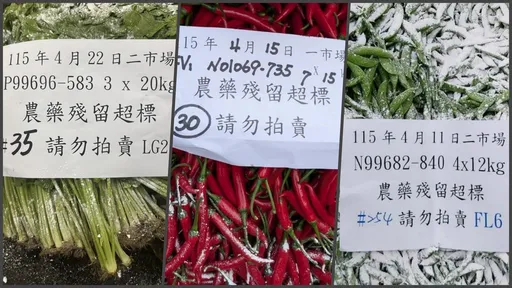 115年4月22日二市場
P99696-583 3 x 20kg
農藥殘留超標
#35 請勿拍賣 LG2
15年4月15日 一市場
FV1 N01069-735 7x15
農藥殘留超標
30 請勿拍賣
115年4月11日二市場
N99682-840 4x12kg
農藥殘留超標
#>54 請勿拍賣 FL6